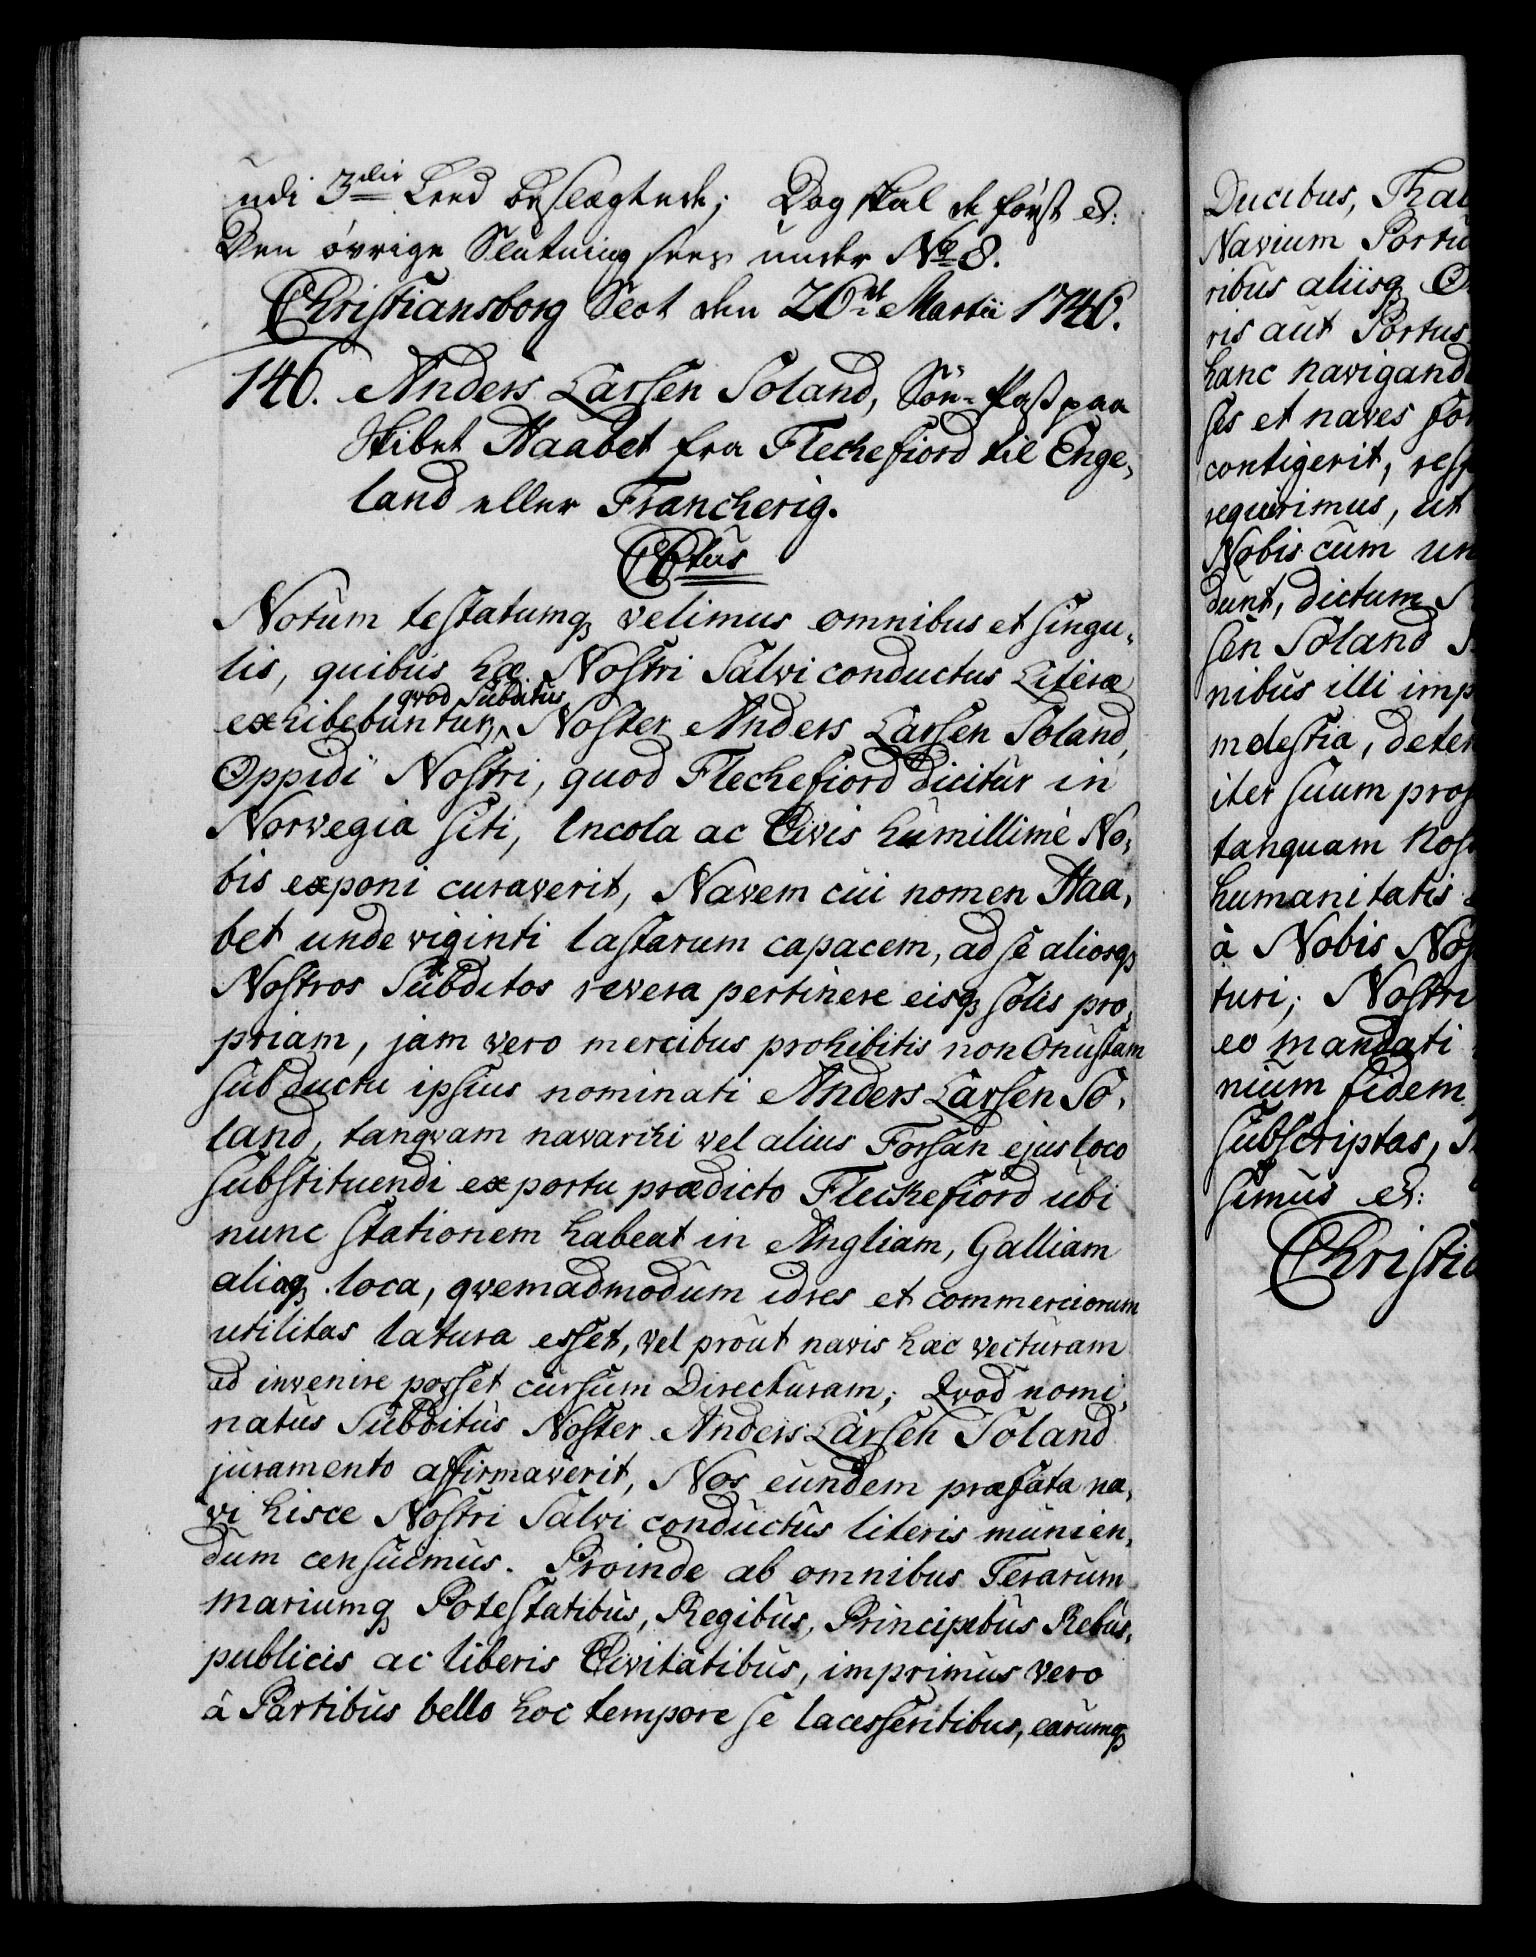 udi 3die Leed beslægtede; Dog skal de först &:
Den övrige Slutning sees under No 8.
Christiansborg Slot den 26de Martii 1746.
146. Anders Larsen Soland, Söe-Pass paa
Skibet Haabet fra Fleckefiord til Enge,
land eller Franckerig.
C6tus
Notum testatumq velimus omnibus et singu,
lis, quibus hæ Nostri Salvi conductus Literæ
qvod Subditus
exhibebuntur, Noster Anders Larsen Soland,
Oppidi Nostri, quod Fleckefiord dicitur in
Norvegia siti, Incola ac Civis humillimè No,
bis exponi curaverit, Navem cui nomen Haa,
bet undeviginti lastarum capacem, ad se aliosq
Nostros Subditos revera pertinere eisq solis pro,
priam, jam vero mercibus prohibitis non onustam
sub ductu ipsius nominati Anders Larsen So,
land, tanqvam navarchi vel alius Forsan ejus loco
substituendi ex portu prædicto Fleckefiord ubi
nunc stationem habeat in Angliam, Galliam
aliaq loca, qvemadmodum id res et commerciorum
utilitas latura esset, vel prout navis hac vecturam
ad invenire posset cursum Directuram; Qvod nomi,
natus Subditus Noster Anders Larsen Soland
juramento affirmaverit, Nos eundem præfata na,
vi hisce Nostri Salvi conductus literis munien,
dum censuimus. Proinde ab omnibus Terarum
mariumq Potestatibus, Regibus, Principibus Rebus,
publicis ac liberis Civitatibus, imprimus vero
à Partibus bello hoc tempore se lacessentibus, earumq
Ducibus, Thal
Navium Portu
ribus aliisq O
ris aut Portus
hanc navigand
ses et naves so
contigerit, resp
requirimus, ut
Nobis cum un
dunt, dictum S
sen Soland
nibus illi imp
molestia, deten
iter suum pros
tanquam Nos
humanitatis
à Nobis Nos
turi; Nostri
eo mandati
nium fidem
subscriptas,
simus &:
Christia